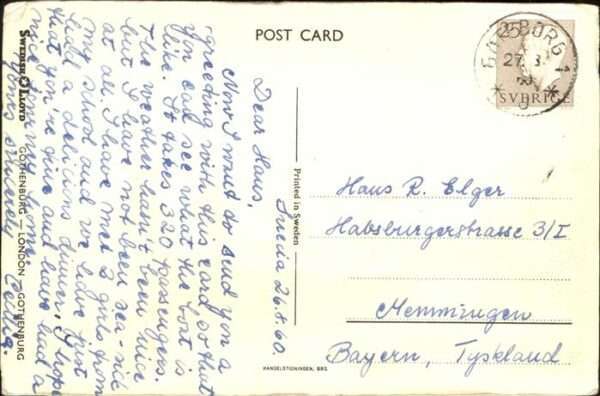 POST CARD
GÖTEBORG 1
27. 8.
SVERIGE
25
Suecia 26.8.60.
Dear Hans,
Now I want to send you a
greeting with this card so that
you can see what the boat is
like. It takes 320 passengers.
The weather hasn't been nice
but I have not been sea-sick
at all. I have met 2 girls from
my school and we have just
had a delicious dinner. I hope
that you're fine and have had a
nice coming home.
Yours sincerely
Printed in Sweden
Hans R. Elger
Habsburgerstrasse 3/I
Memmingen
Bayern, Tyskland
SWEDISH LLOYD GOTHENBURG — LONDON — GOTHENBURG